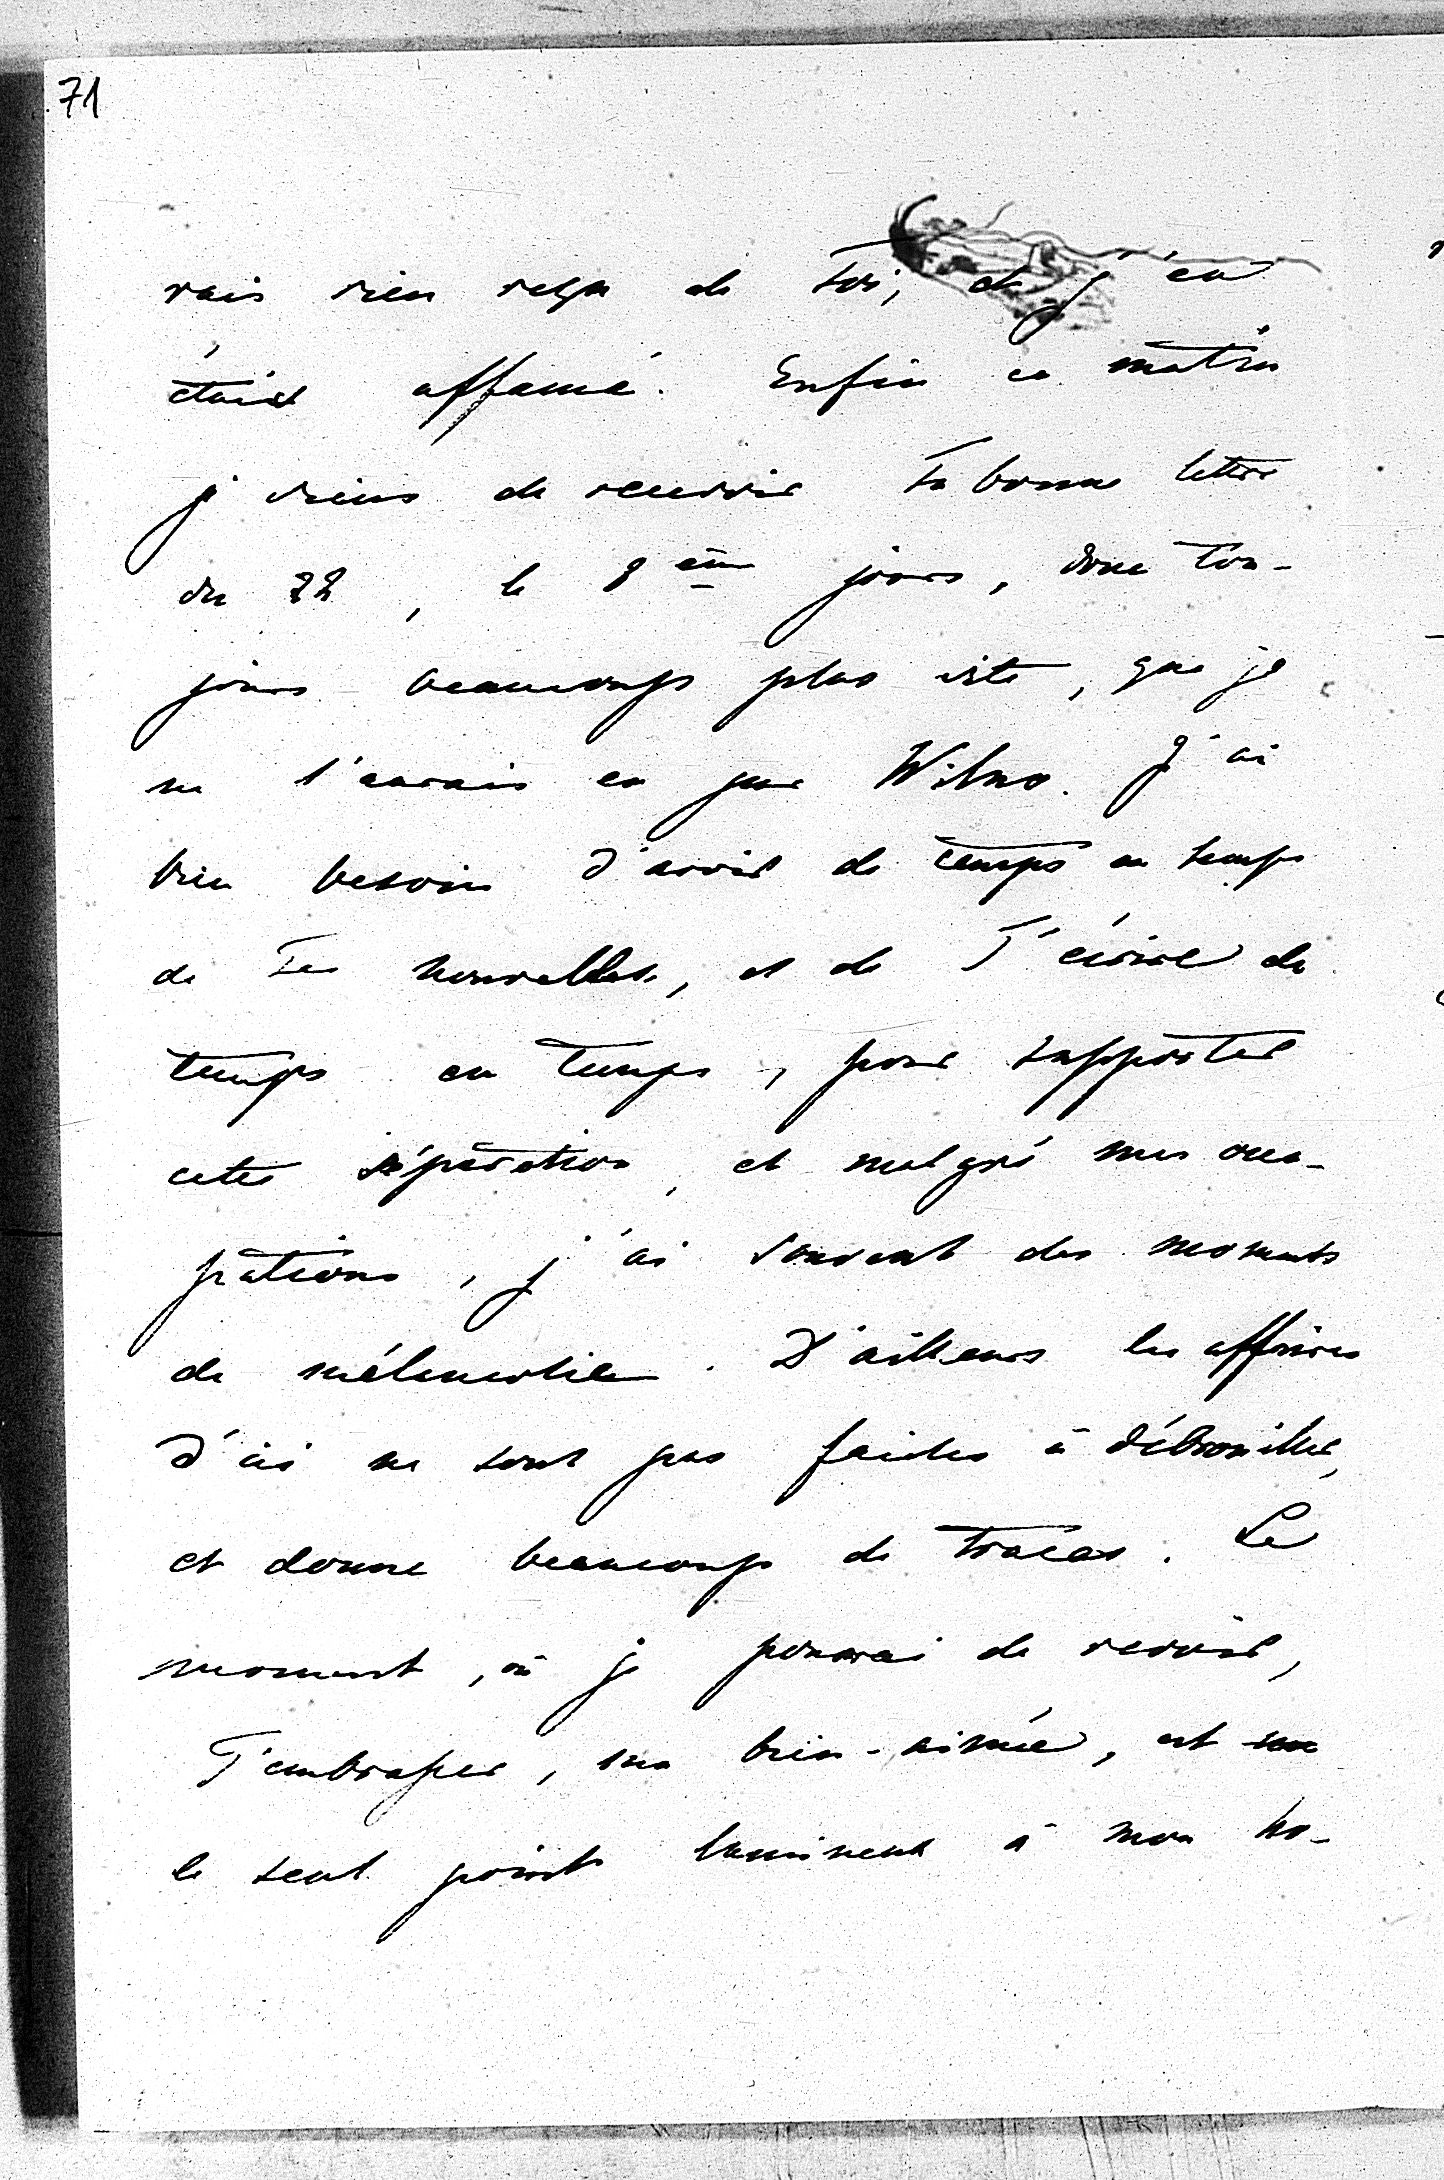 71
vais rien reçu de Toi, et j'en
étais affamé. Enfin ce matin
je viens de recevoir Ta bonne lettre
du 22, le 8ème jours, donc tou-
jours beaucoup plus vite, que je
ne l'aurais eu par Wilno. J'ai
bien besoin d'avoir de temps en temps
de Tes nouvelles, et de T'écrire de
temps en temps, pour supporter
cette séparation, et malgré mes occu-
pations, j'ai souvent des moments
de mélancolie. D'ailleurs les affaires
d'ici ne sont pas faciles à débrouiller,
et donne beaucoup de tracas. Le
moment, où je pourrai de revoir,
T'embrasser, ma bien-aimée, est
le seul point lumineux à mon ho-